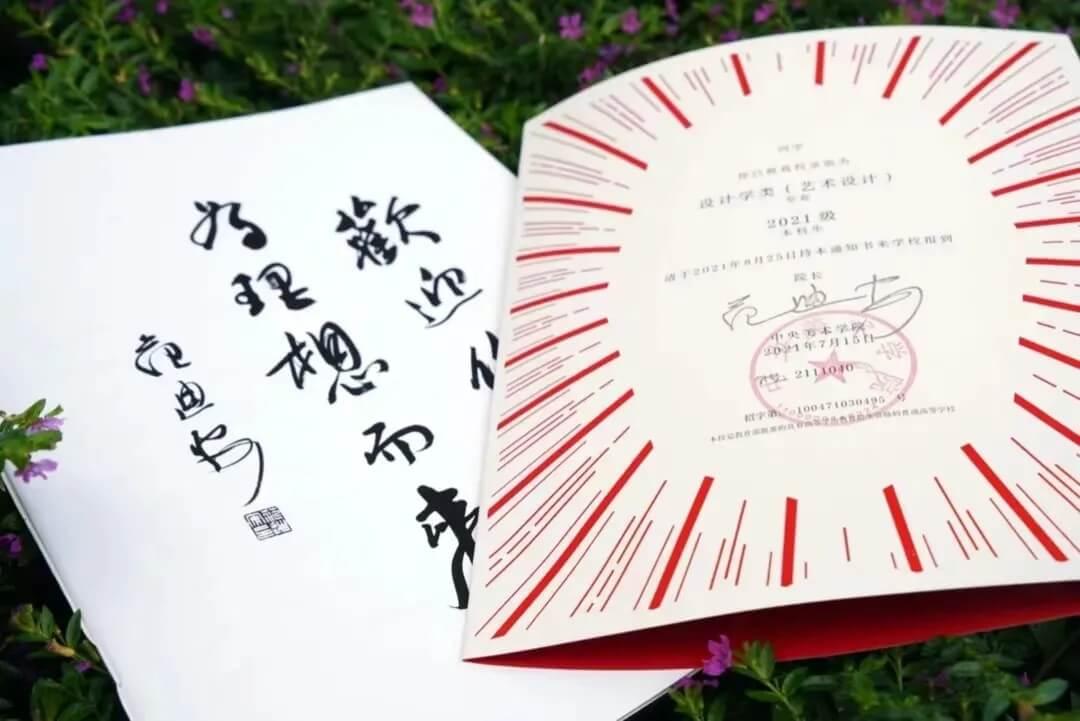 歡迎
为理想而来
范迪安
同学
你已被我校录取为
设计学类（艺术设计）
专业
2021级
本科生
请于2021年8月25日持本通知书来学校报到
院长
范迪安
中央美术学院
2021年7月15日
学号：2111040
招字第 100471030495 号